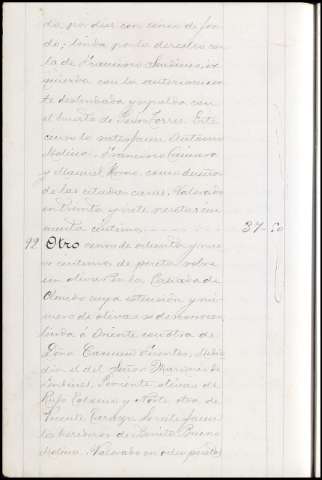 do, por diez con cinco de fon
do; linda por la derecha con
la de Francisco
quierda con la anteriormen
te deslindada y espalda con
el huerto de Torres. Este
censo lo satisfacen Antonio
Molina, Francisco
y Manuel como dueños
de las citadas casas. Valorado
en treinta y siete pesetas cin
cuenta céntimos 37-50
92 Otro censo de ochenta y nue
ve céntimos de peseta sobre
un olivar en la Cañada de
Olmedo cuya estensión y nú
mero de olivas se desconoce
linda á Oriente con otra de
Doña Carmen Fuentes, Medio
día el del Señor Marqués de
Poniente, olivar de
Rufo y Norte otra de
Vicente
los herederos de Benito Bueno
Molina. Valorado en ocho pesetas